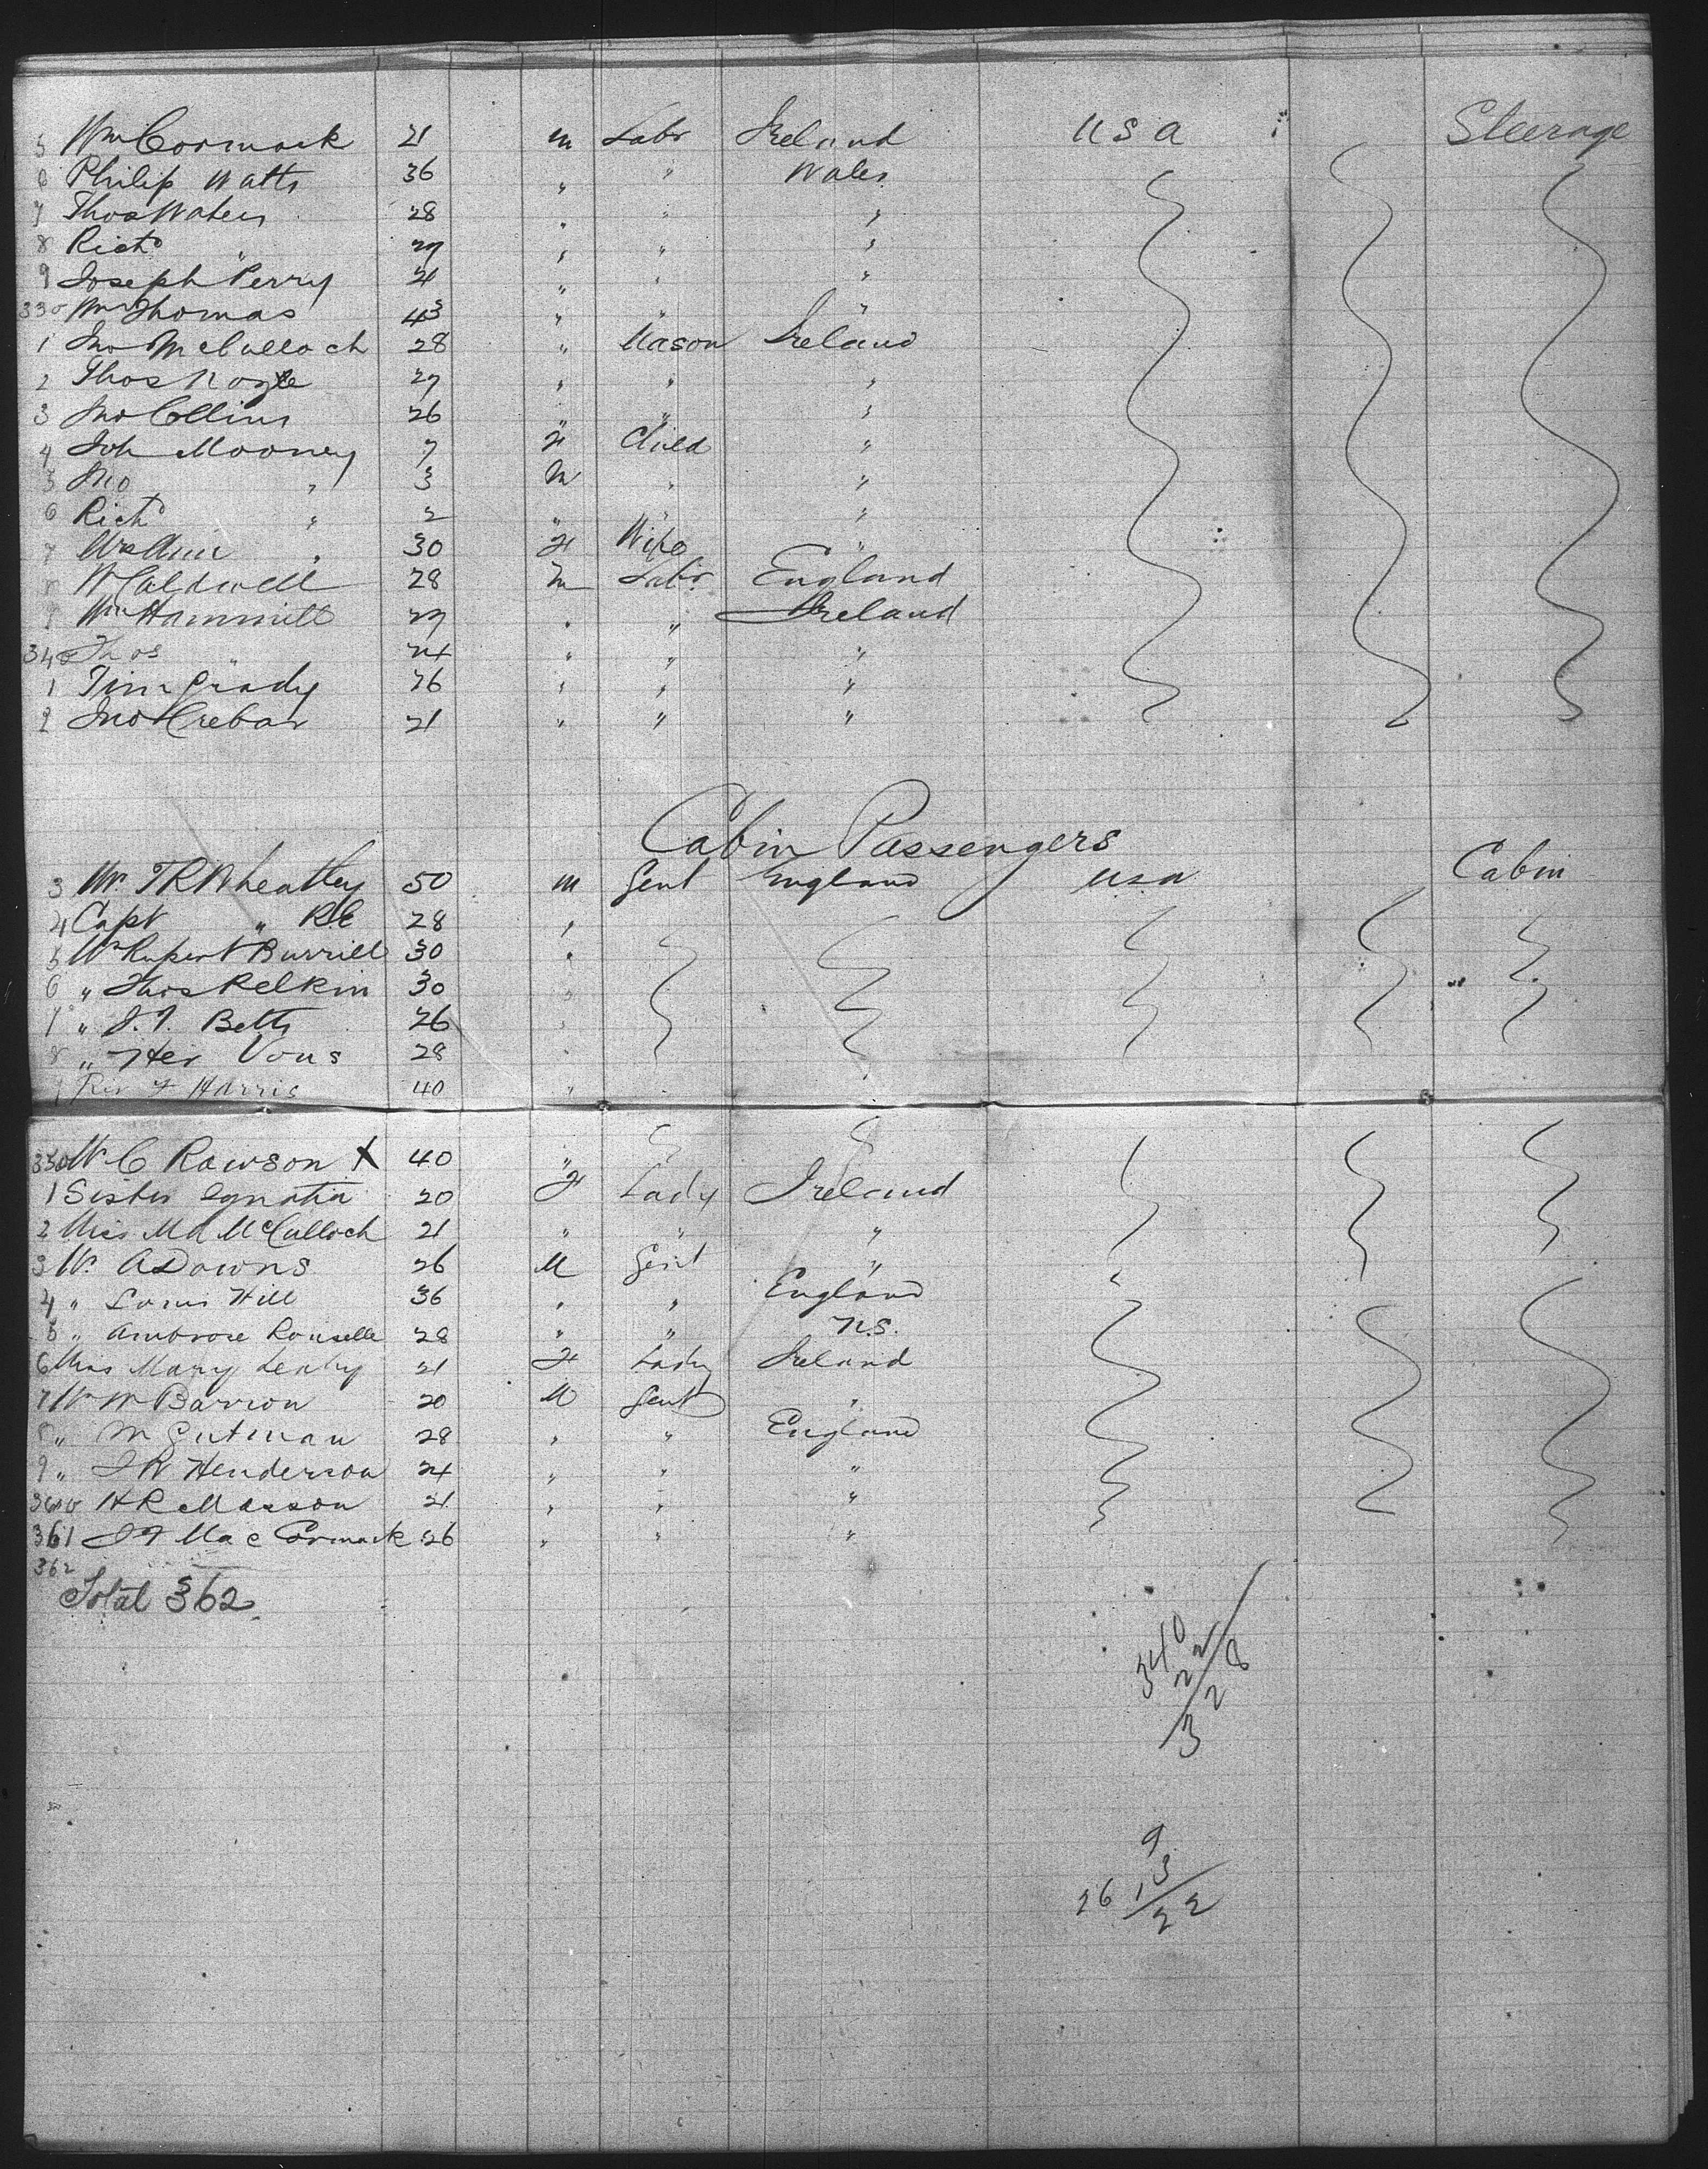 5 Wm Cormack 21 m Labr Ireland USA Steerage
6 Philip Watts 36 " " Wales
7 Thos Waters 28 " " "
8 Richd " 29 " " "
9 Joseph Perry 21 " " "
330 Wm Thomas 43 " " "
1 Jno McCulloch 28 " Mason Ireland
2 Thos Nogle 27 " " "
3 Jno Collins 26 " " "
4 Joh Mooney 7 F Child "
5 Jno " 3 M " "
6 Richd " 2 " " "
7 Ann " 30 F Wife "
8 W Caldwell 28 m Labr England
9 Wm Hammill 29 " " Ireland
340 Thos " 24 " " "
1 Tim Grady 26 " " "
2 Jno Crebar 21 " " "
Cabin Passengers
3 Mr TR Wheatley 50 m Gent England USA Cabin
4 Capt " RE 28 "
5 Mr Rupert Burrill 30 "
6 " Thos Relkin 30 "
7 " J.T. Betts 26 "
8 " Her Vous 28 "
9 Rev F Harris 40 "
350 Mr C Rawson X 40 "
1 Sister Ignatia 20 F Lady Ireland
2 Miss M A McCulloch 21 " " "
3 Mr A Downs 26 M Gent "
4 " Louis Hill 36 " " England
5 " Ambrose Rouselle 28 " " n.s.
6 Miss Mary Leahy 21 F Lady Ireland
7 Mr W Barron 20 M Gent "
8 " M Gutman 28 " " England
9 " J W Henderson 24 " " "
360 " H R Masson 21 " " "
361 J F Mac Cormack 26 " " "
362
Total 362
340
22
328
9
26 13
22